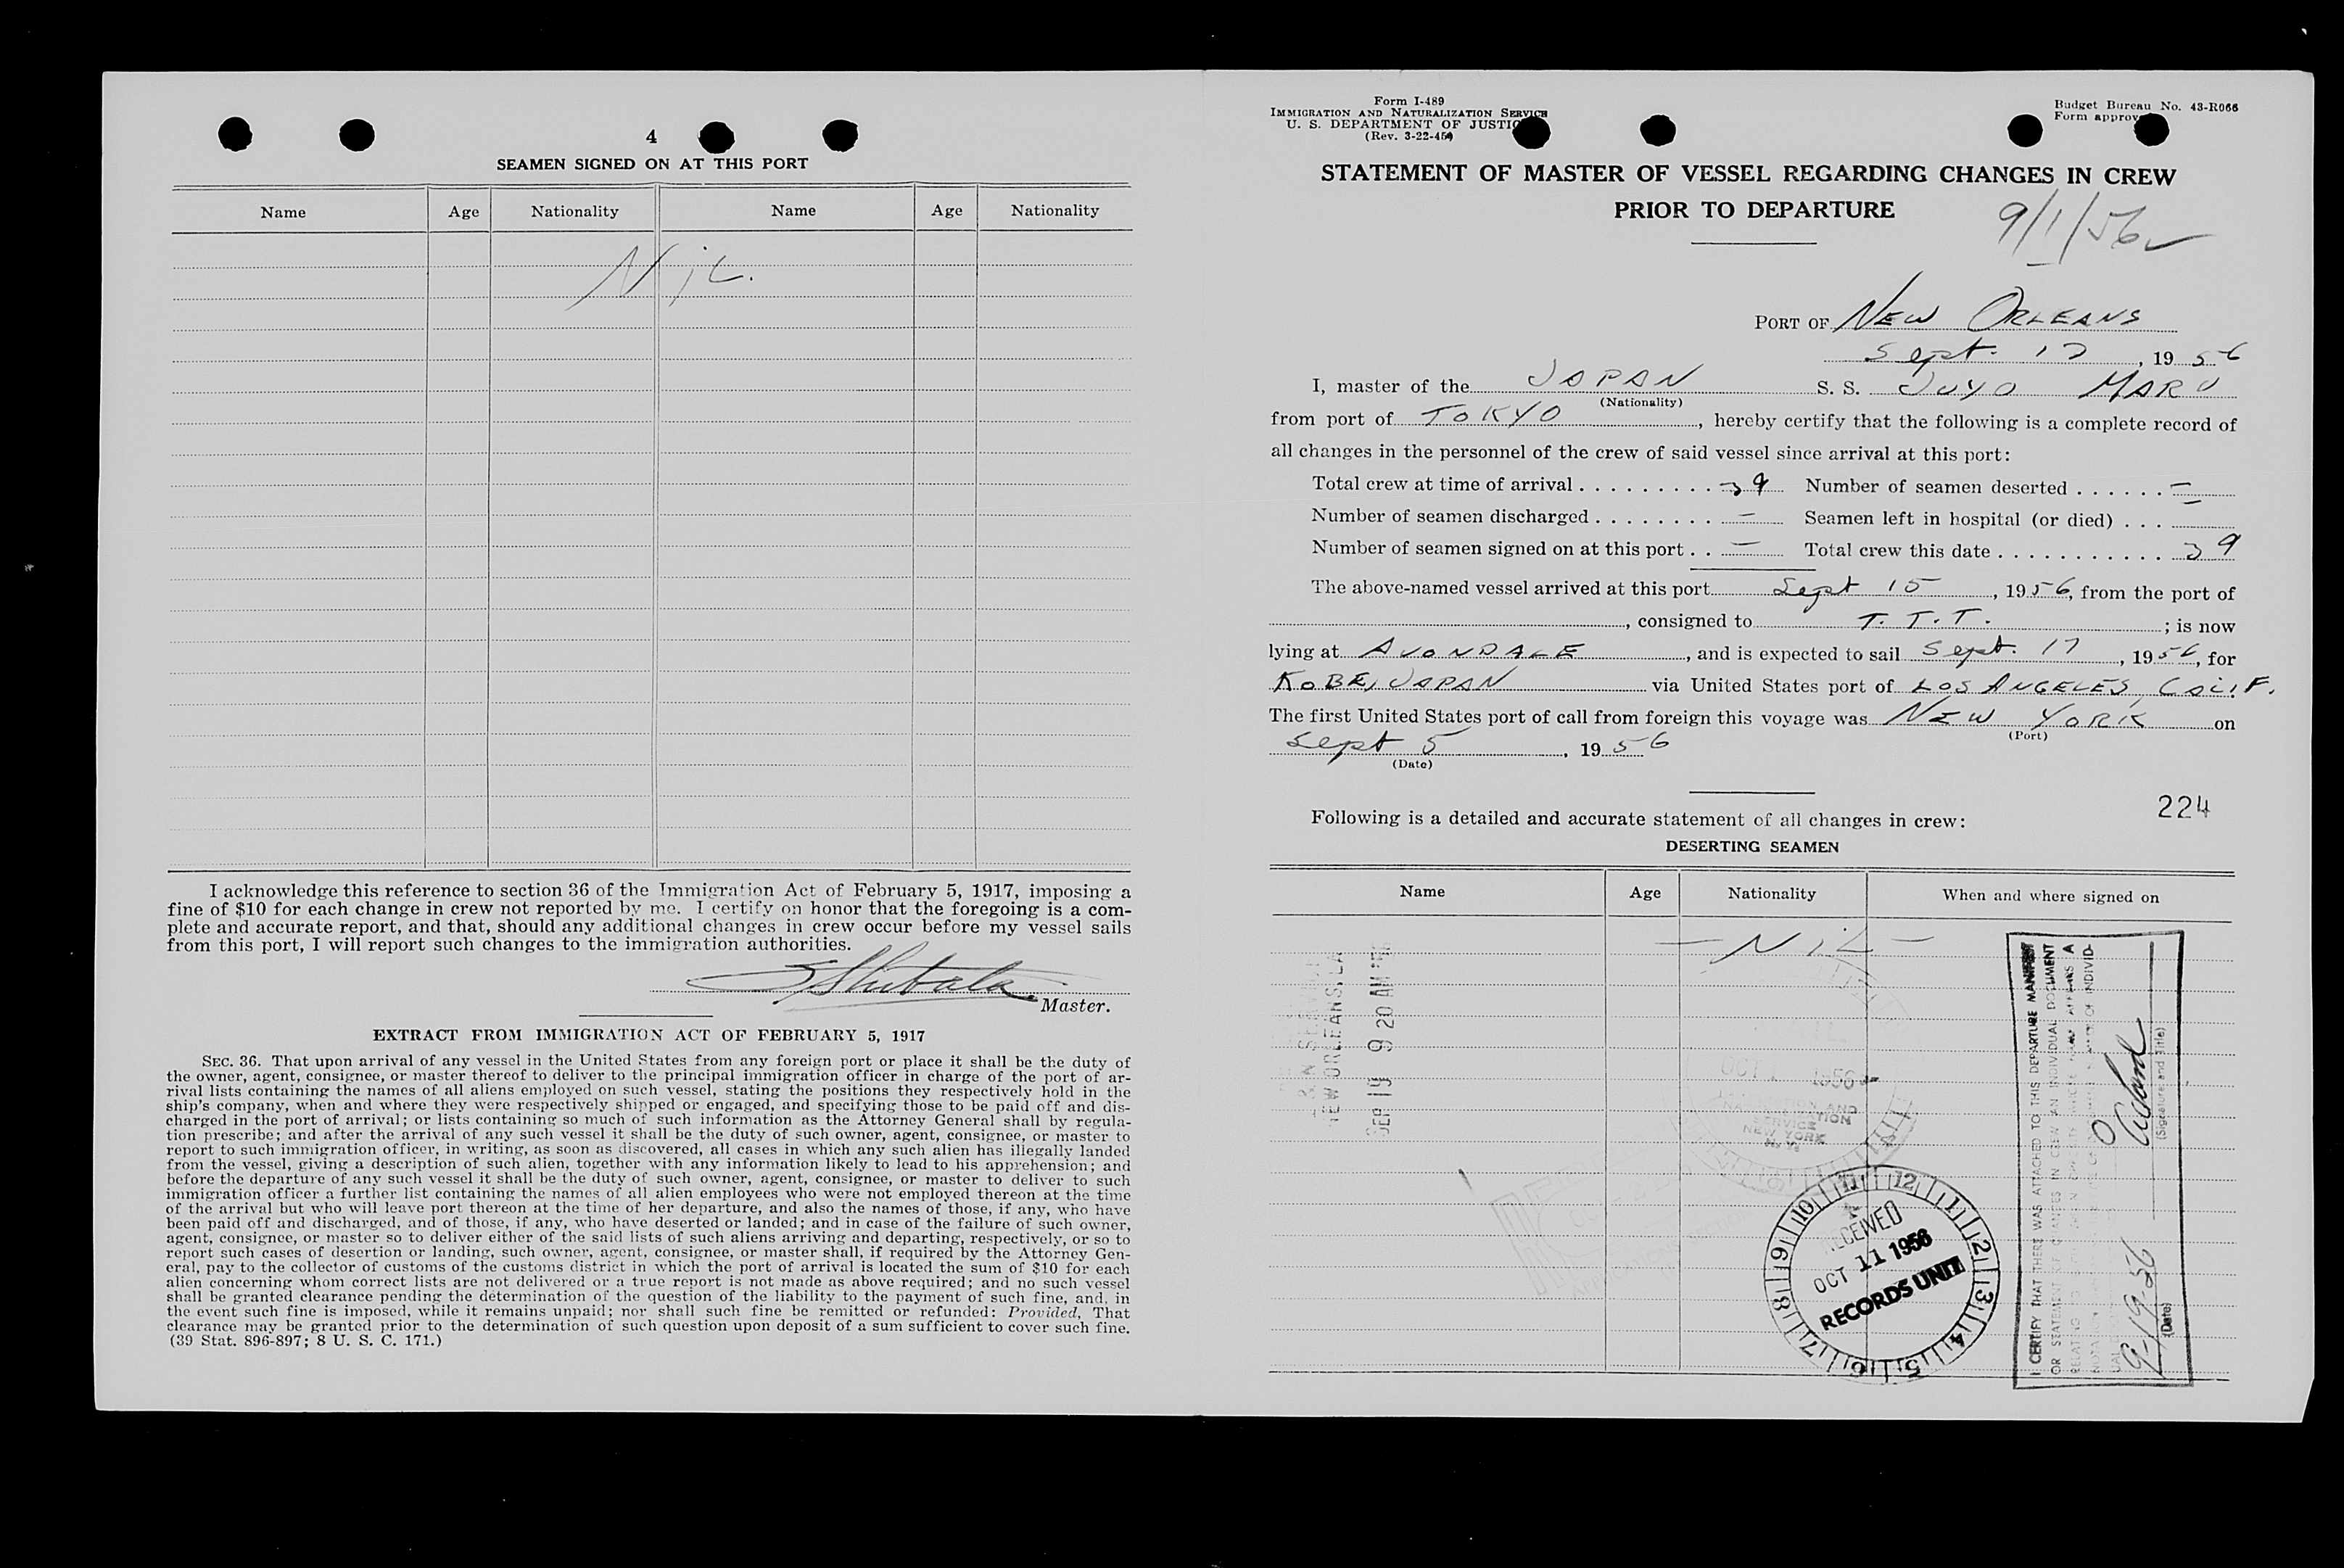 4
SEAMEN SIGNED ON AT THIS PORT
Name Age Nationality Name Age Nationality
Nil.
I acknowledge this reference to section 36 of the Immigration Act of February 5, 1917, imposing a
fine of $10 for each change in crew not reported by me. I certify on honor that the foregoing is a com-
plete and accurate report, and that, should any additional changes in crew occur before my vessel sails
from this port, I will report such changes to the immigration authorities.
Master.
EXTRACT FROM IMMIGRATION ACT OF FEBRUARY 5, 1917
SEC. 36. That upon arrival of any vessel in the United States from any foreign port or place it shall be the duty of
the owner, agent, consignee, or master thereof to deliver to the principal immigration officer in charge of the port of ar-
rival lists containing the names of all aliens employed on such vessel, stating the positions they respectively hold in the
ship's company, when and where they were respectively shipped or engaged, and specifying those to be paid off and dis-
charged in the port of arrival; or lists containing so much of such information as the Attorney General shall by regula-
tion prescribe; and after the arrival of any such vessel it shall be the duty of such owner, agent, consignee, or master to
report to such immigration officer, in writing, as soon as discovered, all cases in which any such alien has illegally landed
from the vessel, giving a description of such alien, together with any information likely to lead to his apprehension; and
before the departure of any such vessel it shall be the duty of such owner, agent, consignee, or master to deliver to such
immigration officer a further list containing the names of all alien employees who were not employed thereon at the time
of the arrival but who will leave port thereon at the time of her departure, and also the names of those, if any, who have
been paid off and discharged, and of those, if any, who have deserted or landed; and in case of the failure of such owner,
agent, consignee, or master so to deliver either of the said lists of such aliens arriving and departing, respectively, or so to
report such cases of desertion or landing, such owner, agent, consignee, or master shall, if required by the Attorney Gen-
eral, pay to the collector of customs of the customs district in which the port of arrival is located the sum of $10 for each
alien concerning whom correct lists are not delivered or a true report is not made as above required; and no such vessel
shall be granted clearance pending the determination of the question of the liability to the payment of such fine, and, in
the event such fine is imposed, while it remains unpaid; nor shall such fine be remitted or refunded: Provided, That
clearance may be granted prior to the determination of such question upon deposit of a sum sufficient to cover such fine.
(39 Stat. 896-897; 8 U. S. C. 171.)
Form I-489
IMMIGRATION AND NATURALIZATION SERVICE
U. S. DEPARTMENT OF JUSTIC
(Rev. 3-22-45)
Budget Bureau No. 43-R066
Form approv
STATEMENT OF MASTER OF VESSEL REGARDING CHANGES IN CREW
PRIOR TO DEPARTURE
9/1/56
PORT OF NEW ORLEANS
Sept. 17, 1956
I, master of the JAPAN S. S. JUYO MARU
(Nationality)
from port of TOKYO, hereby certify that the following is a complete record of
all changes in the personnel of the crew of said vessel since arrival at this port:
Total crew at time of arrival . . . . . . . . . 39 Number of seamen deserted . . . . . . —
Number of seamen discharged . . . . . . . . — Seamen left in hospital (or died) . . . —
Number of seamen signed on at this port . . — Total crew this date . . . . . . . . . . . 39
The above-named vessel arrived at this port Sept 15, 1956, from the port of
, consigned to T. T. T. ; is now
lying at AVONDALE, and is expected to sail Sept. 17, 1956, for
KOBE, JAPAN via United States port of LOS ANGELES, CALIF.
The first United States port of call from foreign this voyage was NEW YORK on
(Port)
Sept 5, 1956
(Date)
224
Following is a detailed and accurate statement of all changes in crew:
DESERTING SEAMEN
Name Age Nationality When and where signed on
— NIL —
NEW ORLEANS, LA
SEP 19 9 20 AM '56
OCT 1956
NEW YORK
RECEIVED
OCT 11 1956
RECORDS UNIT
I CERTIFY THAT THERE WAS ATTACHED TO THIS DEPARTURE MANIFEST
OR STATEMENT OF CHANGES IN CREW AN INDIVIDUAL DOCUMENT
9-19-56
(Date) (Signature and Title)